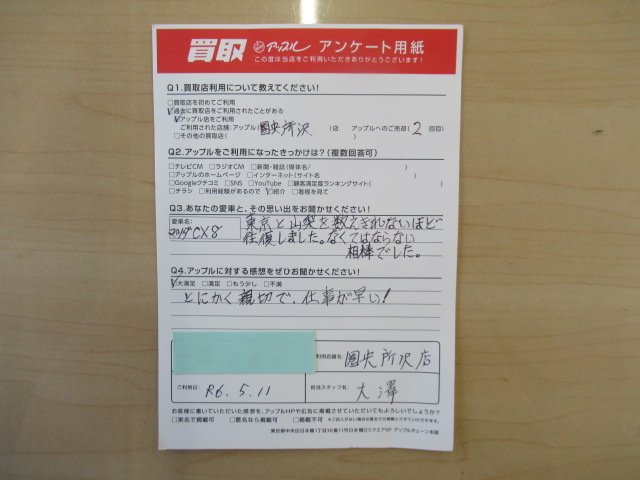 買取 アップル アンケート用紙
この度は当店をご利用いただきありがとうございます!
Q1.買取店利用について教えてください!
□買取店を初めてご利用
☑過去に買取店をご利用されたことがある
☑アップル店をご利用
ご利用された店舗:アップル(圏央所沢)店 アップルへのご売却(2回目)
□その他の買取店( )
Q2.アップルをご利用になったきっかけは?(複数回答可)
□テレビCM □ラジオCM □新聞・雑誌(媒体名/ )
□アップルのホームページ □インターネット(サイト名 )
□Googleクチコミ □SNS □YouTube □顧客満足度ランキングサイト( )
□チラシ □利用経験があるので ☑紹介 □看板を見て
Q3.あなたの愛車と、その思い出をお聞かせください!
愛車名:
マツダCX8
東京と山梨を数えきれないほど
往復しました。なくてはならない
相棒でした。
Q4.アップルに対する感想をぜひお聞かせください!
☑大満足 □満足 □もう少し □不満
とにかく親切で、仕事が早い!
利用店舗名: 圏央所沢店
ご利用日: R6.5.11 担当スタッフ名: 大澤
お客様に書いていただいた感想を、アップルHPや広告に掲載させていただいてもよろしいでしょうか?
□実名で掲載可 □匿名なら掲載可 □掲載不可
東京都中央区日本橋1丁目16番11号日本橋Dスクエア8F アップルチェーン本部